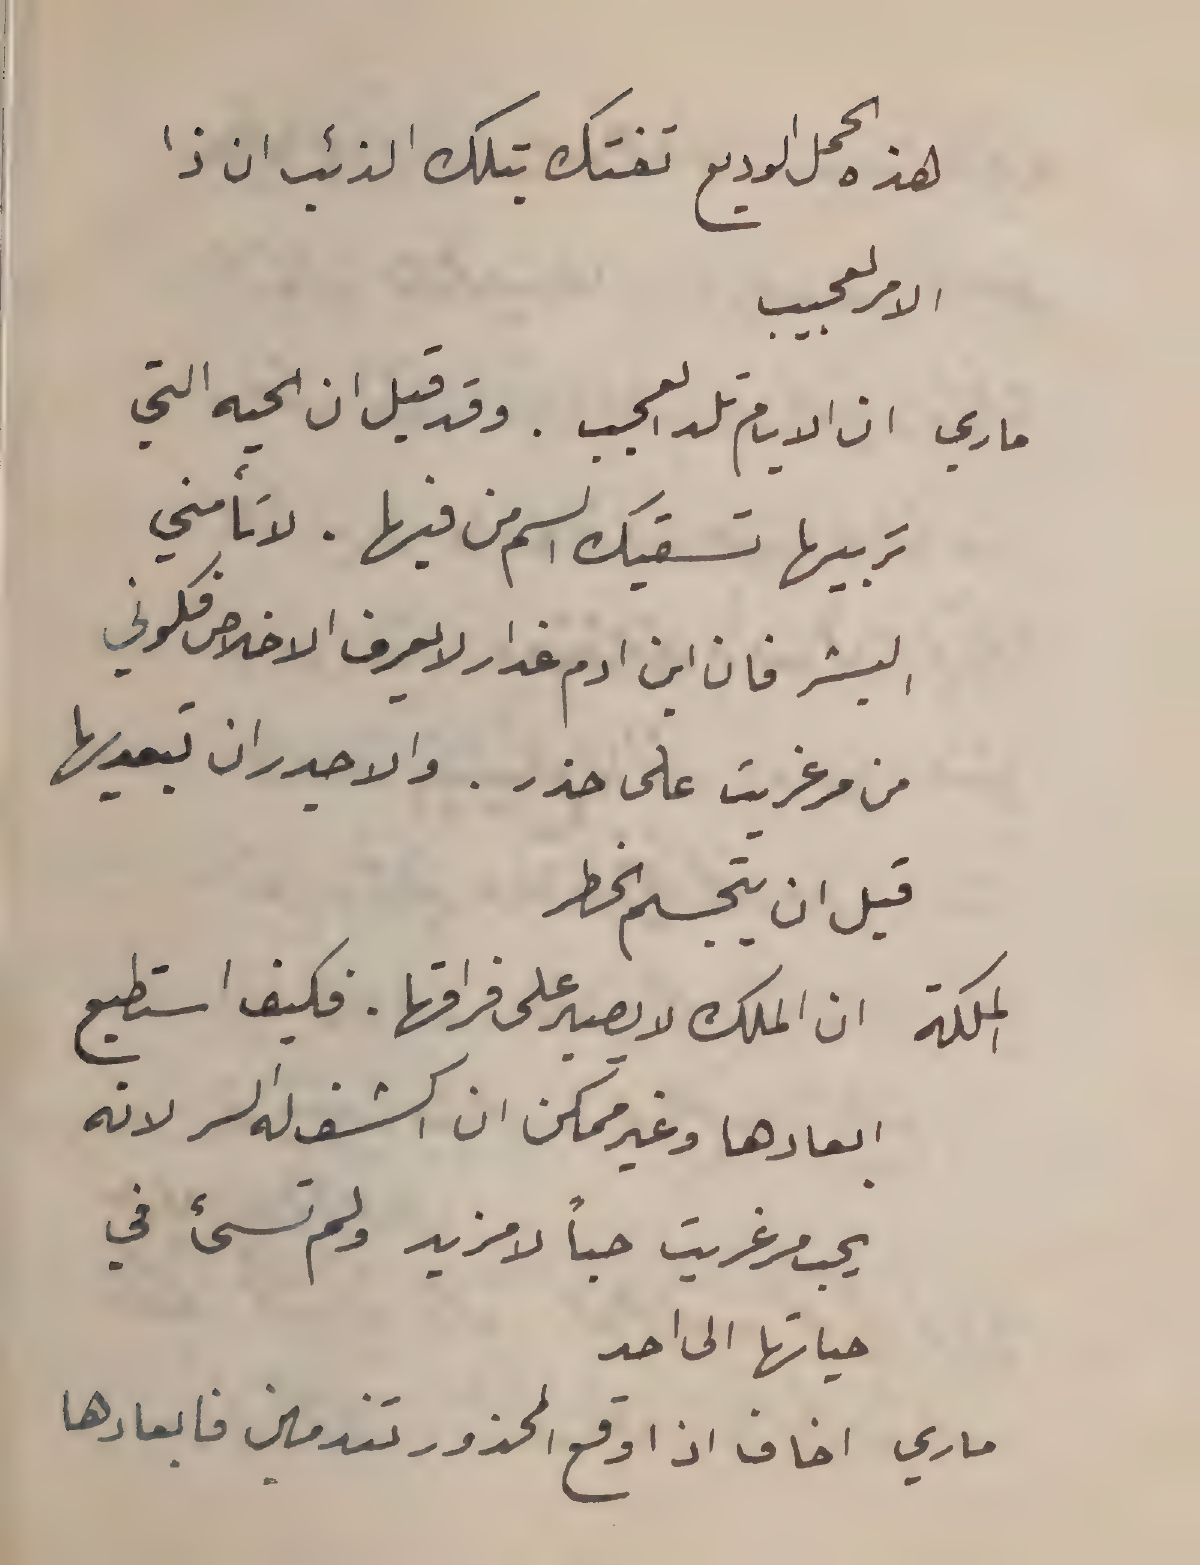 هذه الحمل الوديع تفتك بتلك الذئب ان ذا
الامر لعجيب
ماري ان الايام تلد العجب . وقد قيل ان الحيه التي
تربيها تسقيك السم من فيها . لا تأمني
البشر فان ابن ادم غدار لا يعرف الاخلاص فكوني
من مرغريت على حذر . والاجدر ان تبعديها
قبل ان يتجسم الخطر
الملكة ان الملك لا يصبر على فراقها . فكيف استطيع
ابعادها وغير ممكن ان اكشف له السر لانه
يحب مرغريت حباً لا مزيد ولم تسئ في
حياتها الى احد
ماري اخاف اذا وقع المحذور تندمين فابعادها